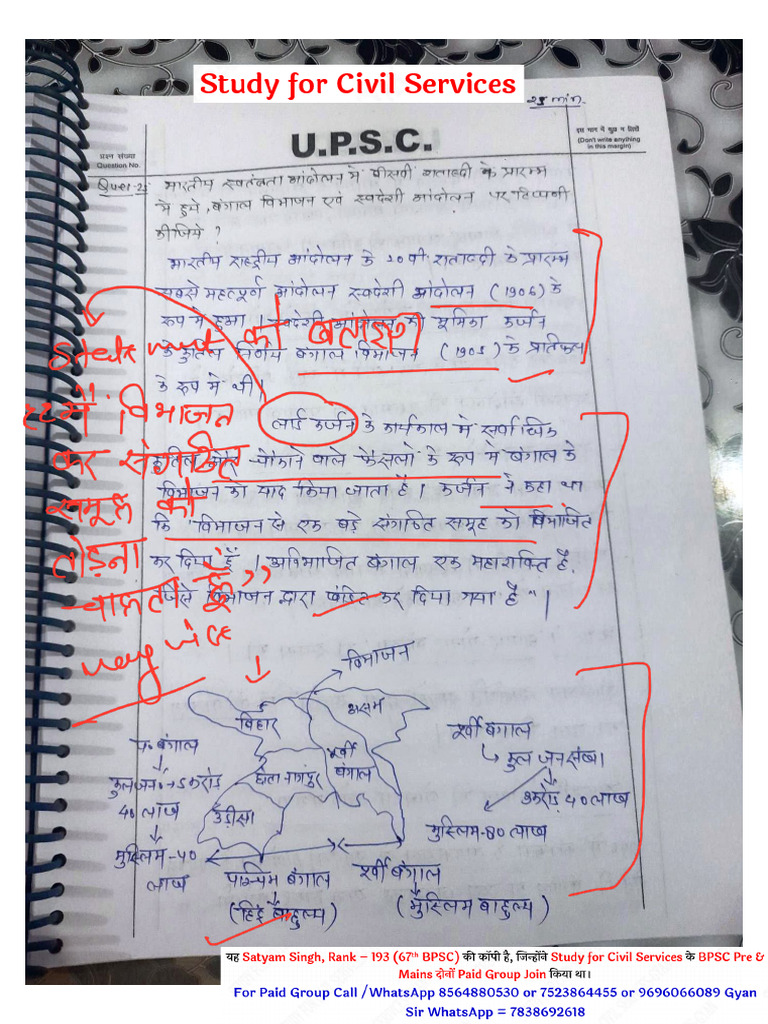 Study for Civil Services
25 min.
U.P.S.C.
प्रश्न संख्या
Question No.
इस भाग में कुछ न लिखें
(Don't write anything in this margin)
Ques-2: भारतीय स्वतंत्रता आंदोलन में बीसवीं शताब्दी के प्रारम्भ
में हुये, बंगाल विभाजन एवं स्वदेशी आंदोलन पर टिप्पणी
कीजिये ?
भारतीय राष्ट्रीय आंदोलन के 20वी शताब्दी के प्रारम्भ
सबसे महत्पूर्ण आंदोलन स्वदेशी आंदोलन (1906) के
रूप मे हुआ। स्वदेशी आंदोलन की भूमिका कर्जन
के कुटिल निर्णय बंगाल विभाजन (1905) के प्रतिक्रिया
के रूप मे थी।
Statement को बताइए
लार्ड कर्जन के कार्यकाल मे सर्वाधिक
कुटिल और चौकाने वाले फैसलो के रूप मे बंगाल के
विभाजन को याद किया जाता है। कर्जन ने कहा था
कि "विभाजन से एक बड़े संगठित समूह को विभाजित
कर दिया हूँ। अविभाजित बंगाल एक महाशक्ति है,
जिसे विभाजन द्वारा खंडित कर दिया गया है"।
हम विभाजन
कर संगठित
समूह को
तोड़ना
चाहते हैं"
very nice
विभाजन
बिहार
असम
पूर्वी
बंगाल
छोटा नागपुर
उड़ीसा
प० बंगाल
कुल जन० → 5 करोड़
40 लाख
मुस्लिम-90
लाख
पूर्वी बंगाल
कुल जनसंख्या
3 करोड़ 40 लाख
मुस्लिम-80 लाख
पश्चिम बंगाल
(हिंदू बाहुल्य)
पूर्वी बंगाल
(मुस्लिम बाहुल्य)
यह Satyam Singh, Rank – 193 (67th BPSC) की कॉपी है, जिन्होंने Study for Civil Services के BPSC Pre &
Mains दोनों Paid Group Join किया था।
For Paid Group Call /WhatsApp 8564880530 or 7523864455 or 9696066089 Gyan
Sir WhatsApp = 7838692618